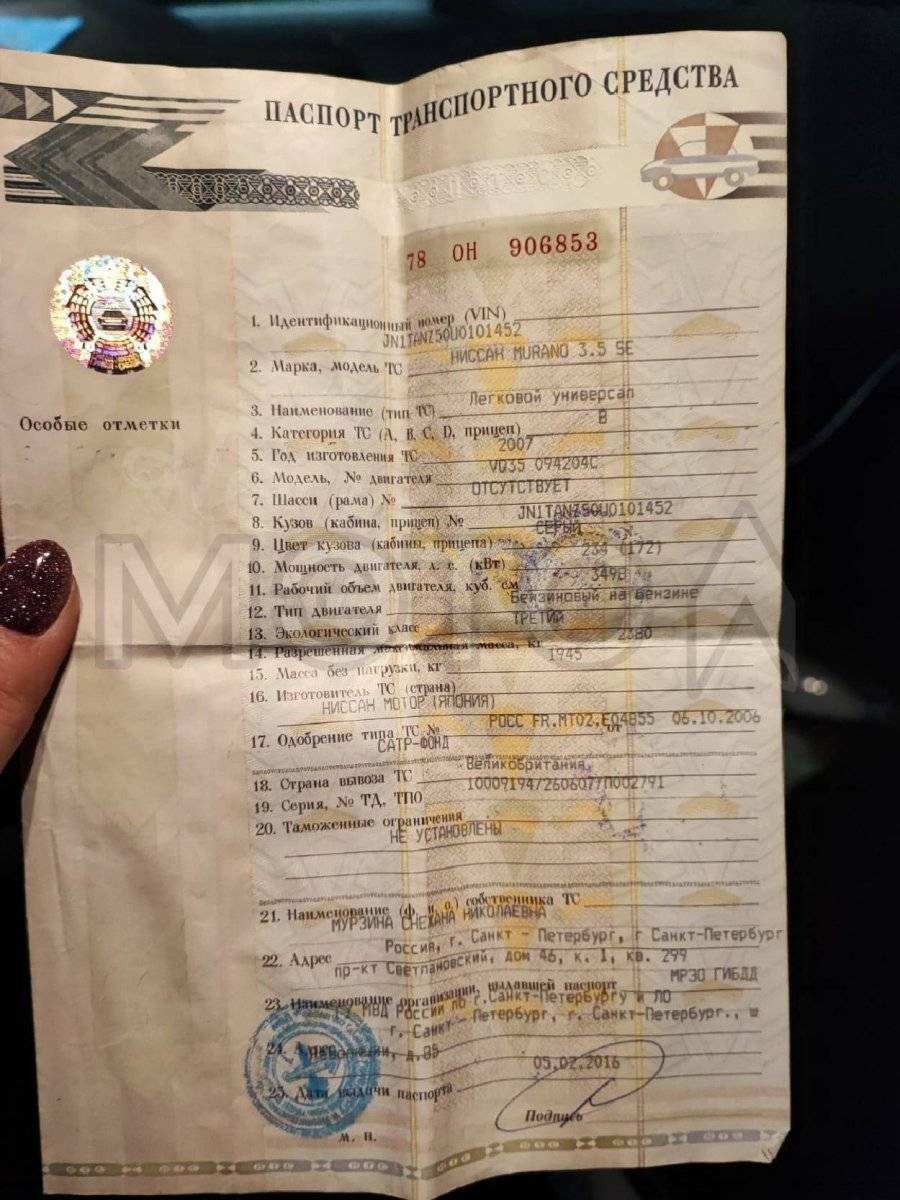 ПАСПОРТ ТРАНСПОРТНОГО СРЕДСТВА
ПТС
78 ОН 906853
Особые отметки
1. Идентификационный номер (VIN)
JN1TANZ50U0101452
2. Марка, модель ТС НИССАН MURANO 3.5 SE
3. Наименование (тип ТС) Легковой универсал
4. Категория ТС (А, В, С, D, прицеп) В
5. Год изготовления ТС 2007
6. Модель, № двигателя VQ35 094204C
7. Шасси (рама) № ОТСУТСТВУЕТ
8. Кузов (кабина, прицеп) № JN1TANZ50U0101452
9. Цвет кузова (кабины, прицепа) СЕРЫЙ
10. Мощность двигателя, л. с. (кВт) 234 (172)
11. Рабочий объем двигателя, куб. см 3498
12. Тип двигателя Бензиновый на бензине
13. Экологический класс ТРЕТИЙ
14. Разрешенная максимальная масса, кг 2380
15. Масса без нагрузки, кг 1945
16. Изготовитель ТС (страна)
НИССАН МОТОР (ЯПОНИЯ)
17. Одобрение типа ТС № РОСС FR.МТ02.Е04855 от 06.10.2006
САТР-ФОНД
18. Страна вывоза ТС Великобритания
19. Серия, № ТД, ТПО 10009194/260607/П002791
20. Таможенные ограничения
НЕ УСТАНОВЛЕНЫ
21. Наименование (ф. и. о.) собственника ТС
МУРЗИНА СНЕЖАНА НИКОЛАЕВНА
22. Адрес Россия, г. Санкт - Петербург, г Санкт-Петербург
пр-кт Светлановский, дом 46, к. 1, кв. 299
23. Наименование организации, выдавшей паспорт МРЭО ГИБДД
МВД России по г.Санкт-Петербургу и ЛО
24. Адрес г. Санкт - Петербург, г. Санкт-Петербург., ш
Революции, д.85
25. Дата выдачи паспорта 05.02.2016
Подпись
М. П.